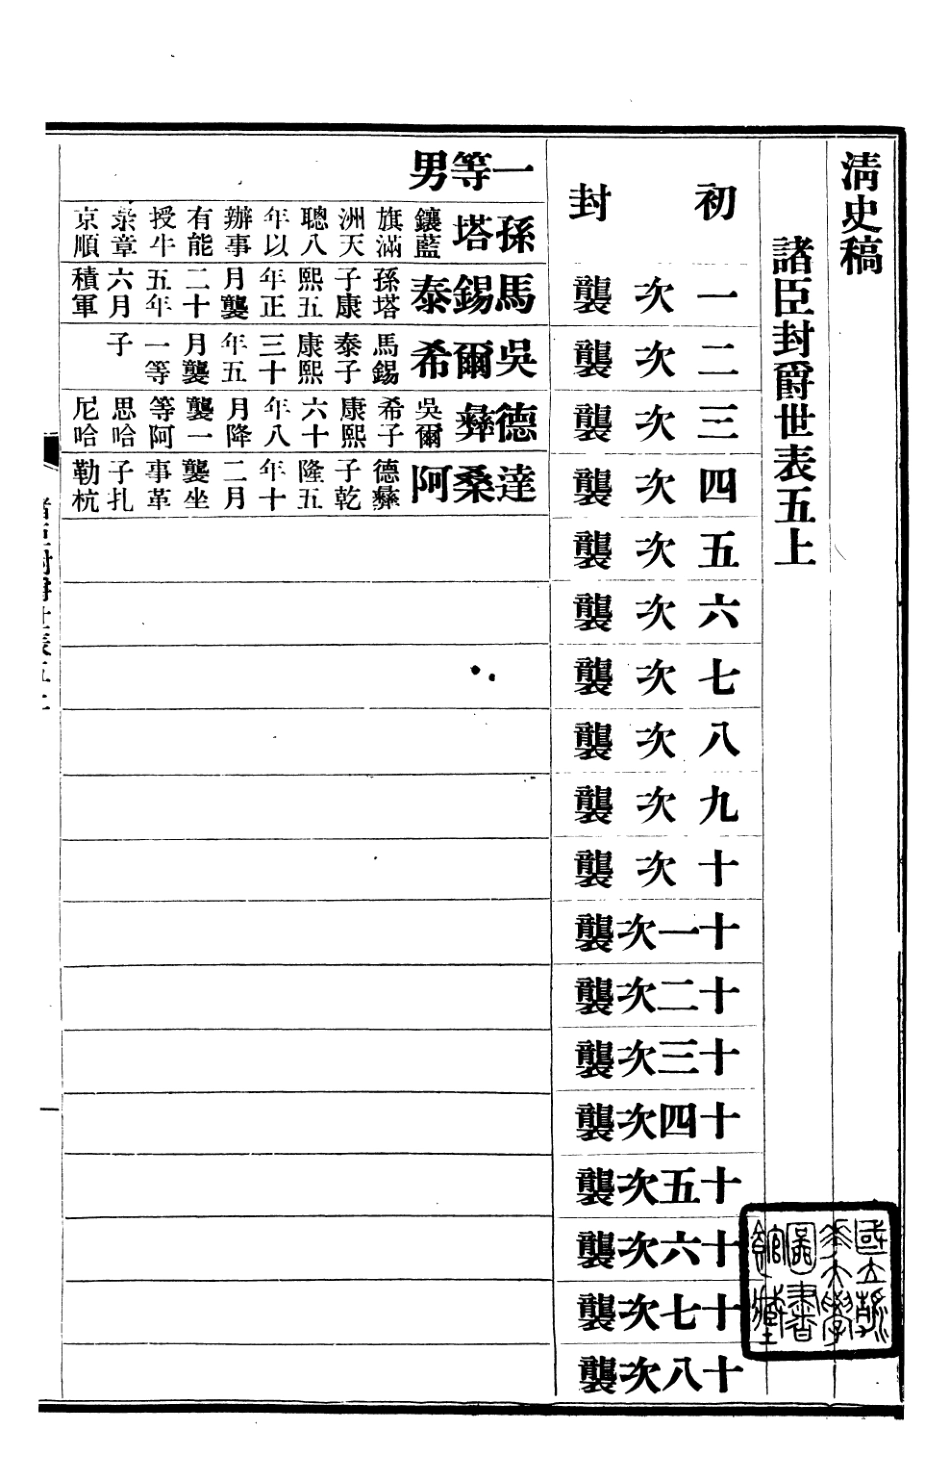 清史稿
諸臣封爵世表五上
初封
一次襲
二次襲
三次襲
四次襲
五次襲
六次襲
七次襲
八次襲
九次襲
十次襲
十一次襲
十二次襲
十三次襲
十四次襲
十五次襲
十六次襲
十七次襲
十八次襲
一等男
孫塔鑲藍旗滿洲天聰八年以辦事有能授牛彔章京順
馬錫泰孫塔子康熙五年正月襲二十五年六月積軍
吳爾希馬錫泰子康熙三十年五月襲一等子
德彝吳爾希子康熙六十年八月降襲一等阿思哈尼哈
達桑阿德彝子乾隆五年十二月襲坐事革子扎勒杭
諸臣封爵世表五上
一